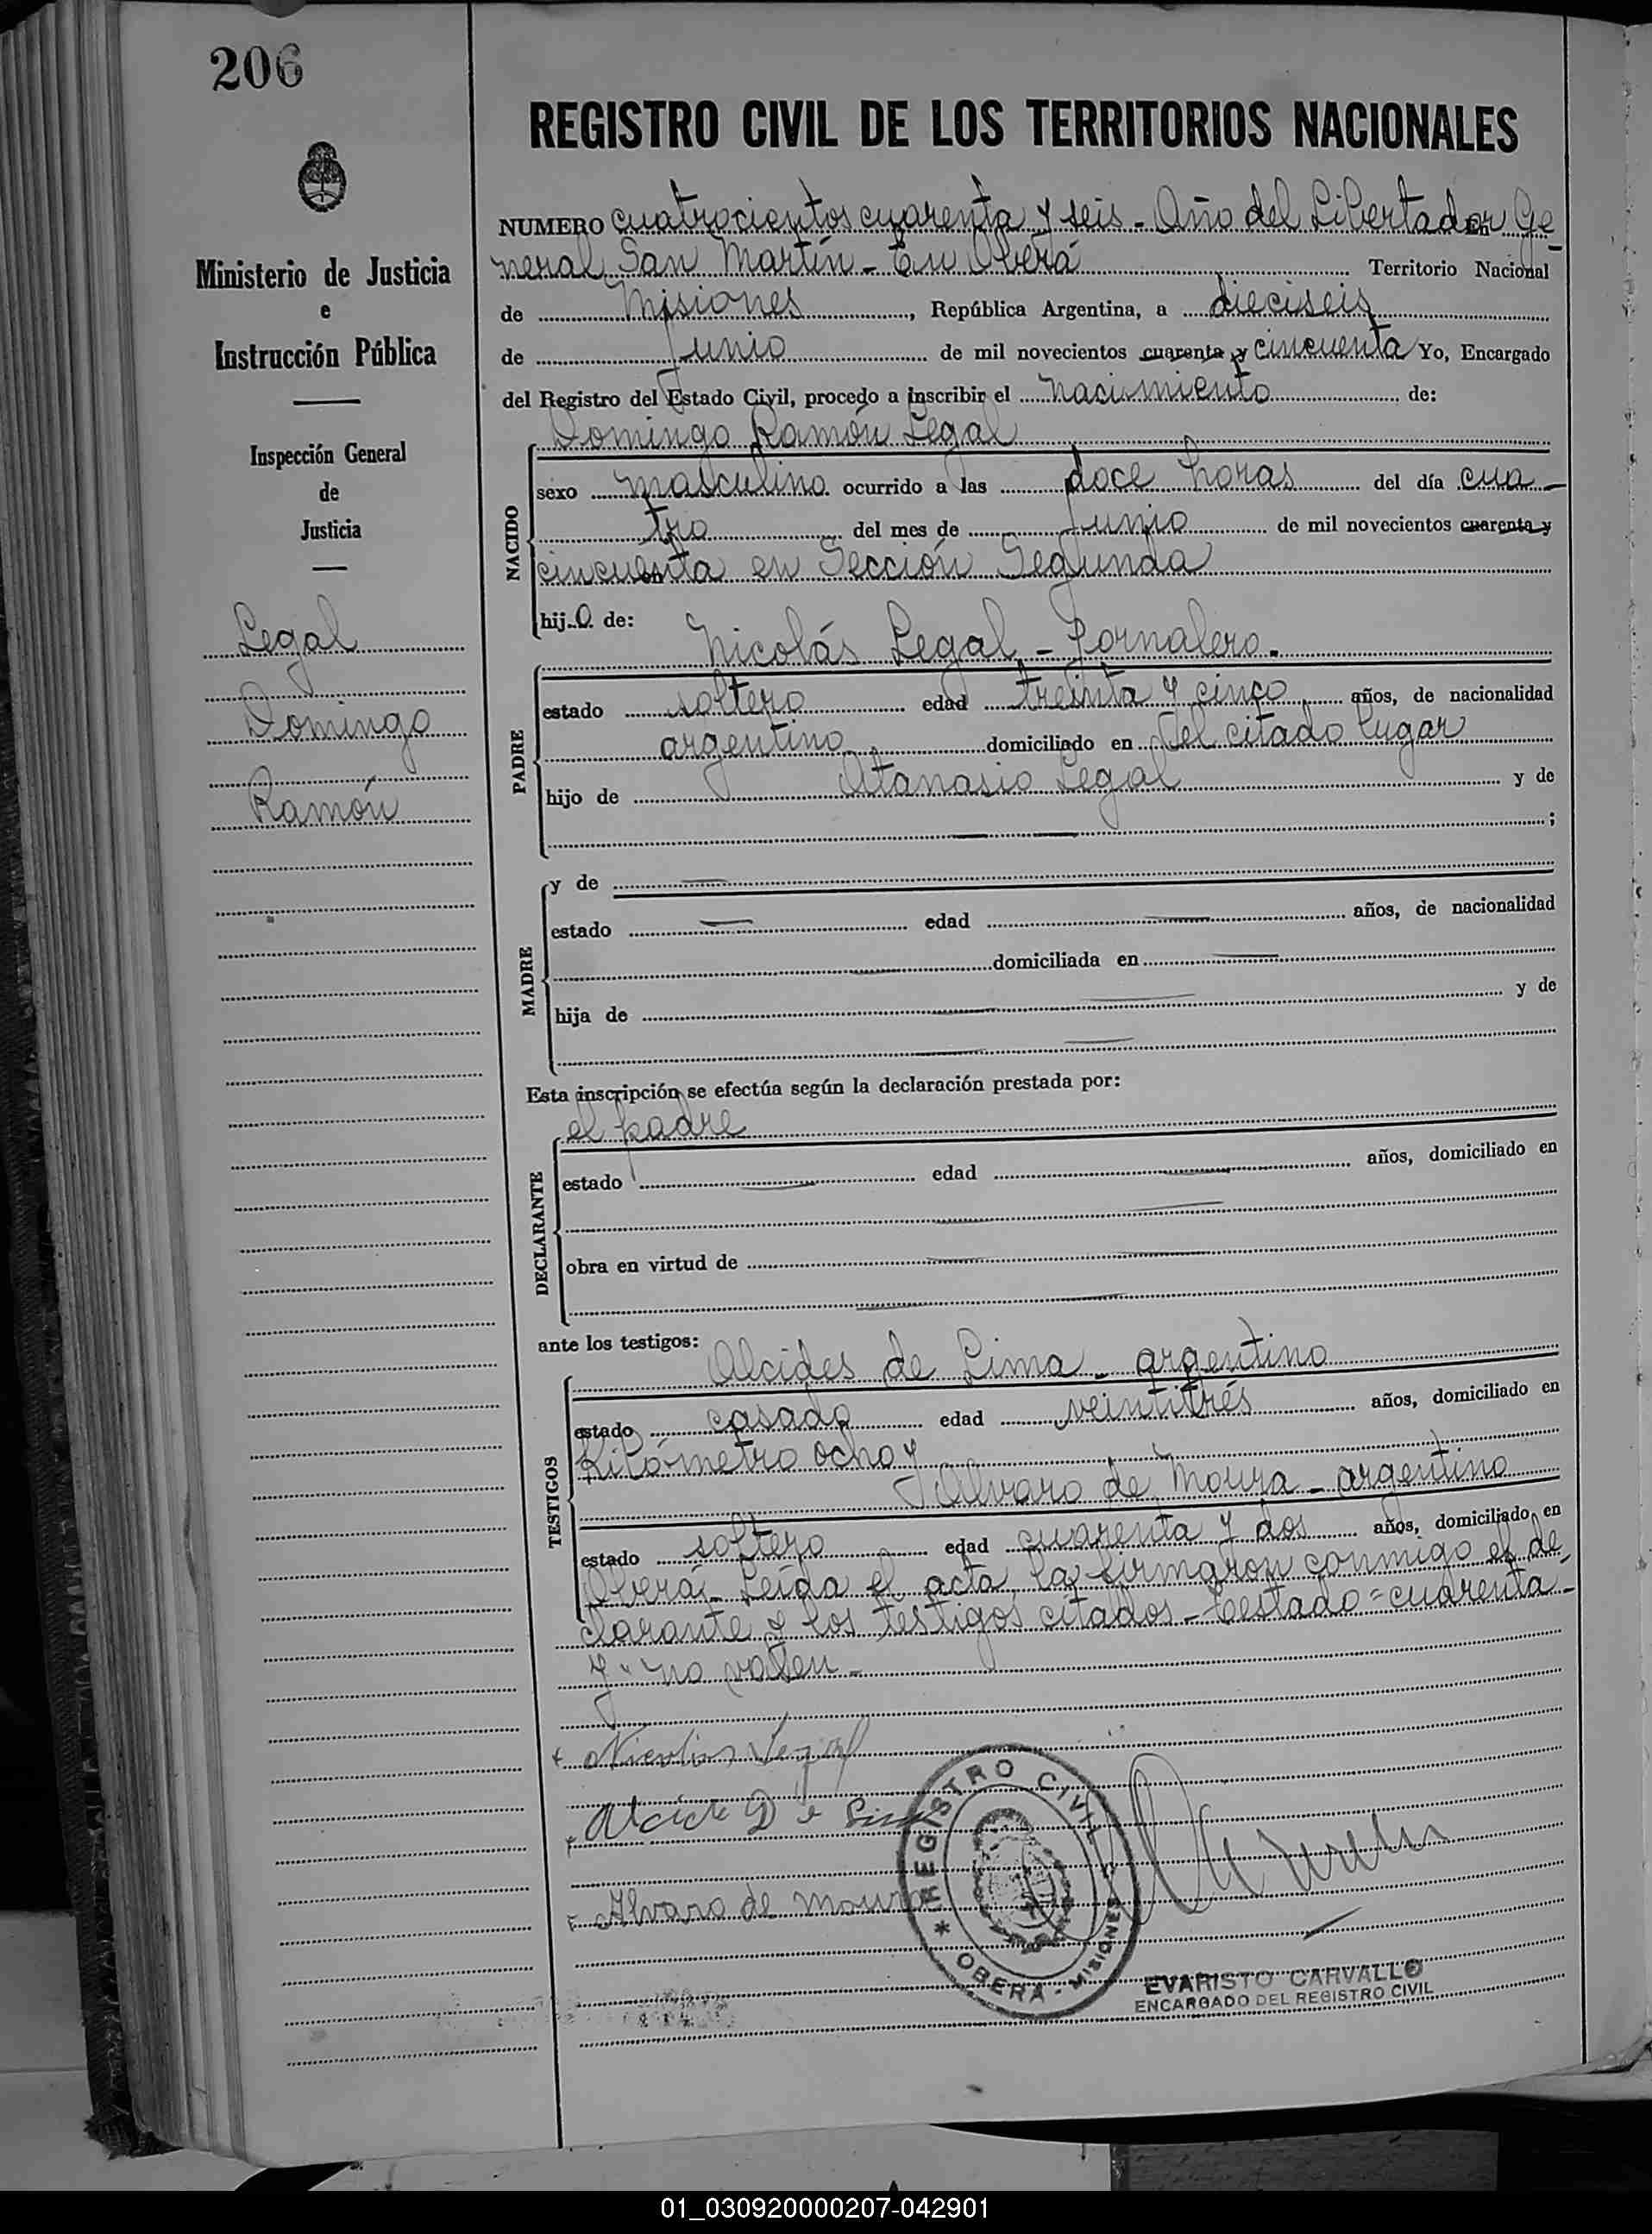 206
Ministerio de Justicia
e
Instrucción Pública
Inspección General
de
Justicia
Legal
Domingo
Ramón
REGISTRO CIVIL DE LOS TERRITORIOS NACIONALES
NUMERO cuatrocientos cuarenta y seis - Año del Libertador Ge-
neral San Martín - En Oberá Territorio Nacional
de Misiones, República Argentina, a dieciseis
de Junio de mil novecientos cuarenta y cincuenta Yo, Encargado
del Registro del Estado Civil, procedo a inscribir el nacimiento de:
Domingo Ramón Legal
NACIDO
sexo masculino ocurrido a las doce horas del día cua-
tro del mes de Junio de mil novecientos cuarenta y
cincuenta en Sección Segunda
hijo de:
Nicolás Legal - Jornalero.
PADRE
estado soltero edad treinta y cinco años, de nacionalidad
argentino, domiciliado en el citado lugar
hijo de Atanasio Legal y de
;
MADRE
y de
estado edad años, de nacionalidad
domiciliada en
hija de y de
Esta inscripción se efectúa según la declaración prestada por:
el padre
DECLARANTE
estado edad años, domiciliado en
obra en virtud de
ante los testigos:
Alcides de Lima - argentino
TESTIGOS
estado casado edad veintitrés años, domiciliado en
Kilómetro ocho y
Alvaro de Moura - argentino
estado soltero edad cuarenta y dos años, domiciliado en
Oberá - Leída el acta, la firmaron conmigo el de-
clarante y los testigos citados - Testado = cuarenta -
y" no valen -
Nicolas Legal
Alcide De Lima
Alvaro de Moura
REGISTRO CIVIL
* OBERA - MISIONES
EVARISTO CARVALLO
ENCARGADO DEL REGISTRO CIVIL
01_030920000207-042901